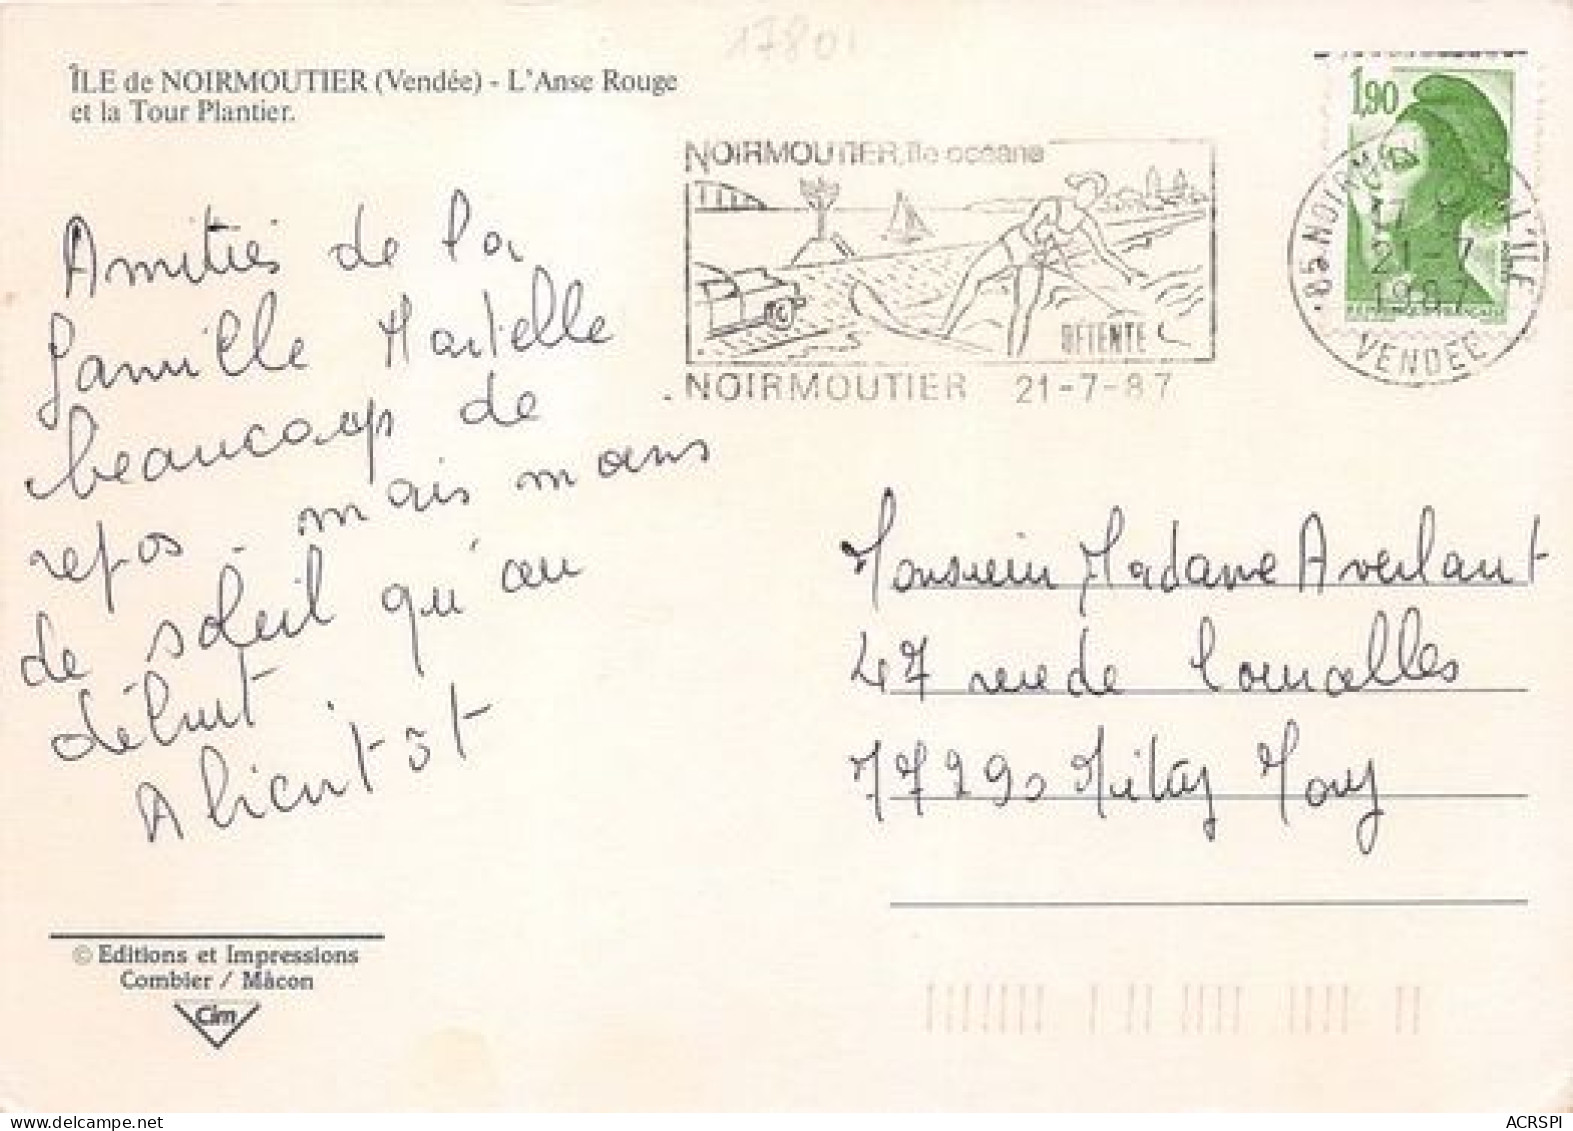 17801
ÎLE de NOIRMOUTIER (Vendée) - L'Anse Rouge
et la Tour Plantier.
NOIRMOUTIER, île océane
DETENTE
NOIRMOUTIER 21-7-87
1,90
85 NOIRMOUTIER L'ILE
17 H
21-7
1987
VENDEE
REPUBLIQUE FRANÇAISE
Amitiés de la
famille Martelle
beaucoup de
repos - mais moins
de soleil qu'au
début
A bientôt
Monsieur Madame Averlant
47 rue de
77290 Mitry Mory
© Editions et Impressions
Combier / Mâcon
Cim
ACRSPI